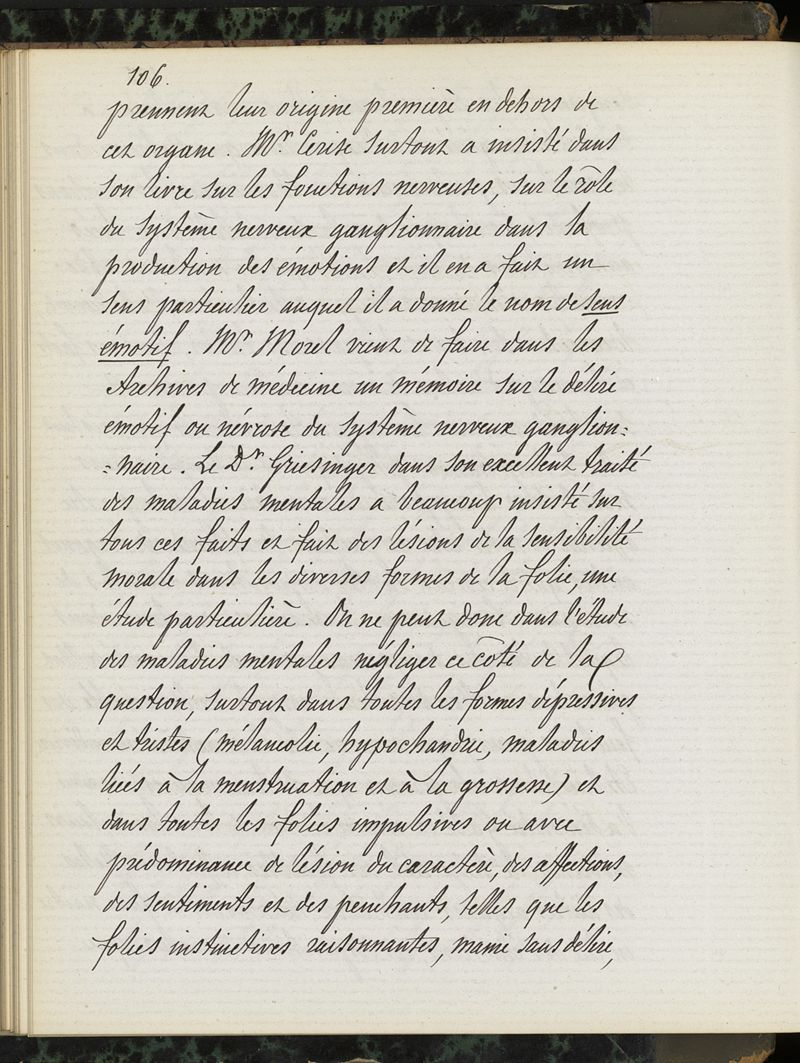 106.
prennent leur origine première en dehors de
cet organe. Mr. Cerise surtout a insisté dans
son livre sur les fonctions nerveuses, sur le rôle
du système nerveux ganglionnaire dans la
production des émotions et il en a fait un
sens particulier auquel il a donné le nom de sens
émotif. Mr. Morel vient de faire dans les
Archives de médecine un mémoire sur le délire
émotif ou névrose du système nerveux ganglion=
=naire. Le Dr. Griesinger dans son excellent traité
des maladies mentales a beaucoup insisté sur
tous ces faits et fait des lésions de la sensibilité
morale dans les diverses formes de la folie, une
étude particulière. On ne peut donc dans l'étude
des maladies mentales négliger ce côté de la
question, surtout dans toutes les formes dépressives
et tristes (mélancolie, hypochondrie, maladies
liées à la menstruation et à la grossesse) et
dans toutes les folies impulsives ou avec
prédominance de lésion du caractère, des affections,
des sentiments et des penchants, telles que les
folies instinctives raisonnantes, manie sans délire,